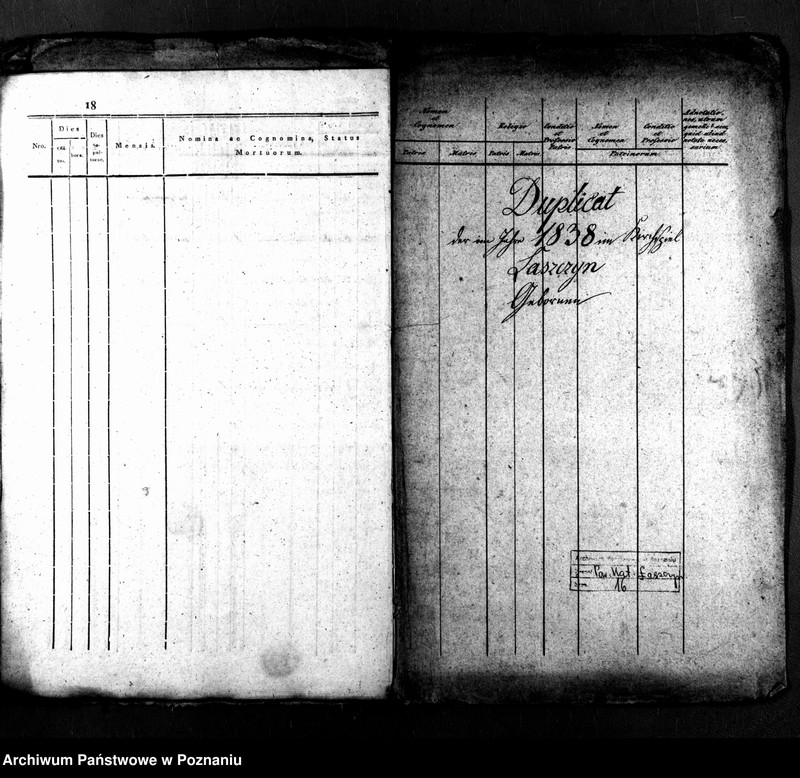 18
Nro.
Dies
ori-
tus.
hora.
Dies
se-
pul-
turae.
Mensis.
Nomina ac Cognomina, Status
Mortuorum.
Nomen
et
Cognomen
Patris
Matris
Religio
Patris
Matris
Conditio
et
Professio
Patris
Nomen
et
Cognomen
Conditio
et
Professio
Patrinorum
Adnotatio-
nes, utrum
gemelli? seu
quid aliud
notatu neces-
sarium
Duplicat
der im Jahre 1838 im Kirchspiel
Łaszczyn
Gebornen
Par. Kat. Łaszczyn
16
Archiwum Państwowe w Poznaniu